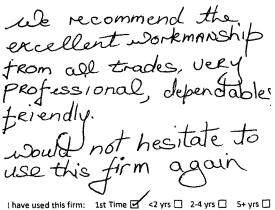 We recommend the
excellent workmanship
from all trades, very
professional, dependable,
friendly.
Would not hesitate to
use this firm again
I have used this firm: 1st Time ☑ <2 yrs ☐ 2-4 yrs ☐ 5+ yrs ☐